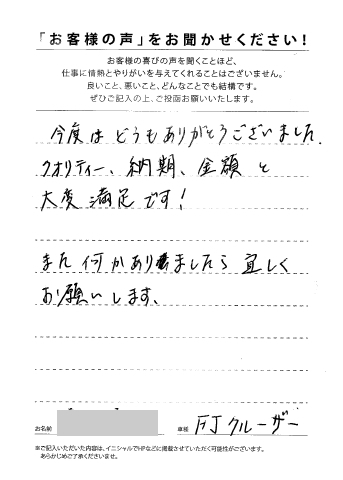 「お客様の声」をお聞かせください！
お客様の喜びの声を聞くことほど、
仕事に情熱とやりがいを与えてくれることはございません。
良いこと、悪いこと、どんなことでも結構です。
ぜひご記入の上、ご投函お願いいたします。
今度はどうもありがとうございました。
クオリティー、納期、金額と
大変満足です！
また何かありましたら宜しく
お願いします。
お名前
車種 FJクルーザー
※ご記入いただいた内容は、イニシャルでHPなどに掲載させていただく可能性がございます。
あらかじめご了承くださいませ。